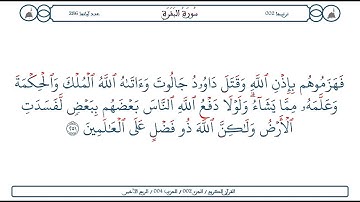 ترتيبها 002
سُورَةُ البَقَرَةِ
عدد آياتها 286
فَهَزَمُوهُم بِإِذْنِ ٱللَّهِ وَقَتَلَ دَاوُۥدُ جَالُوتَ وَءَاتَىٰهُ ٱللَّهُ ٱلْمُلْكَ وَٱلْحِكْمَةَ
وَعَلَّمَهُۥ مِمَّا يَشَآءُ ۗ وَلَوْلَا دَفْعُ ٱللَّهِ ٱلنَّاسَ بَعْضَهُم بِبَعْضٍ لَّفَسَدَتِ
ٱلْأَرْضُ وَلَٰكِنَّ ٱللَّهَ ذُو فَضْلٍ عَلَى ٱلْعَٰلَمِينَ ٢٥١
القرآن الكريم / الجزء 002 / الحزب 004 / الربع الخامس